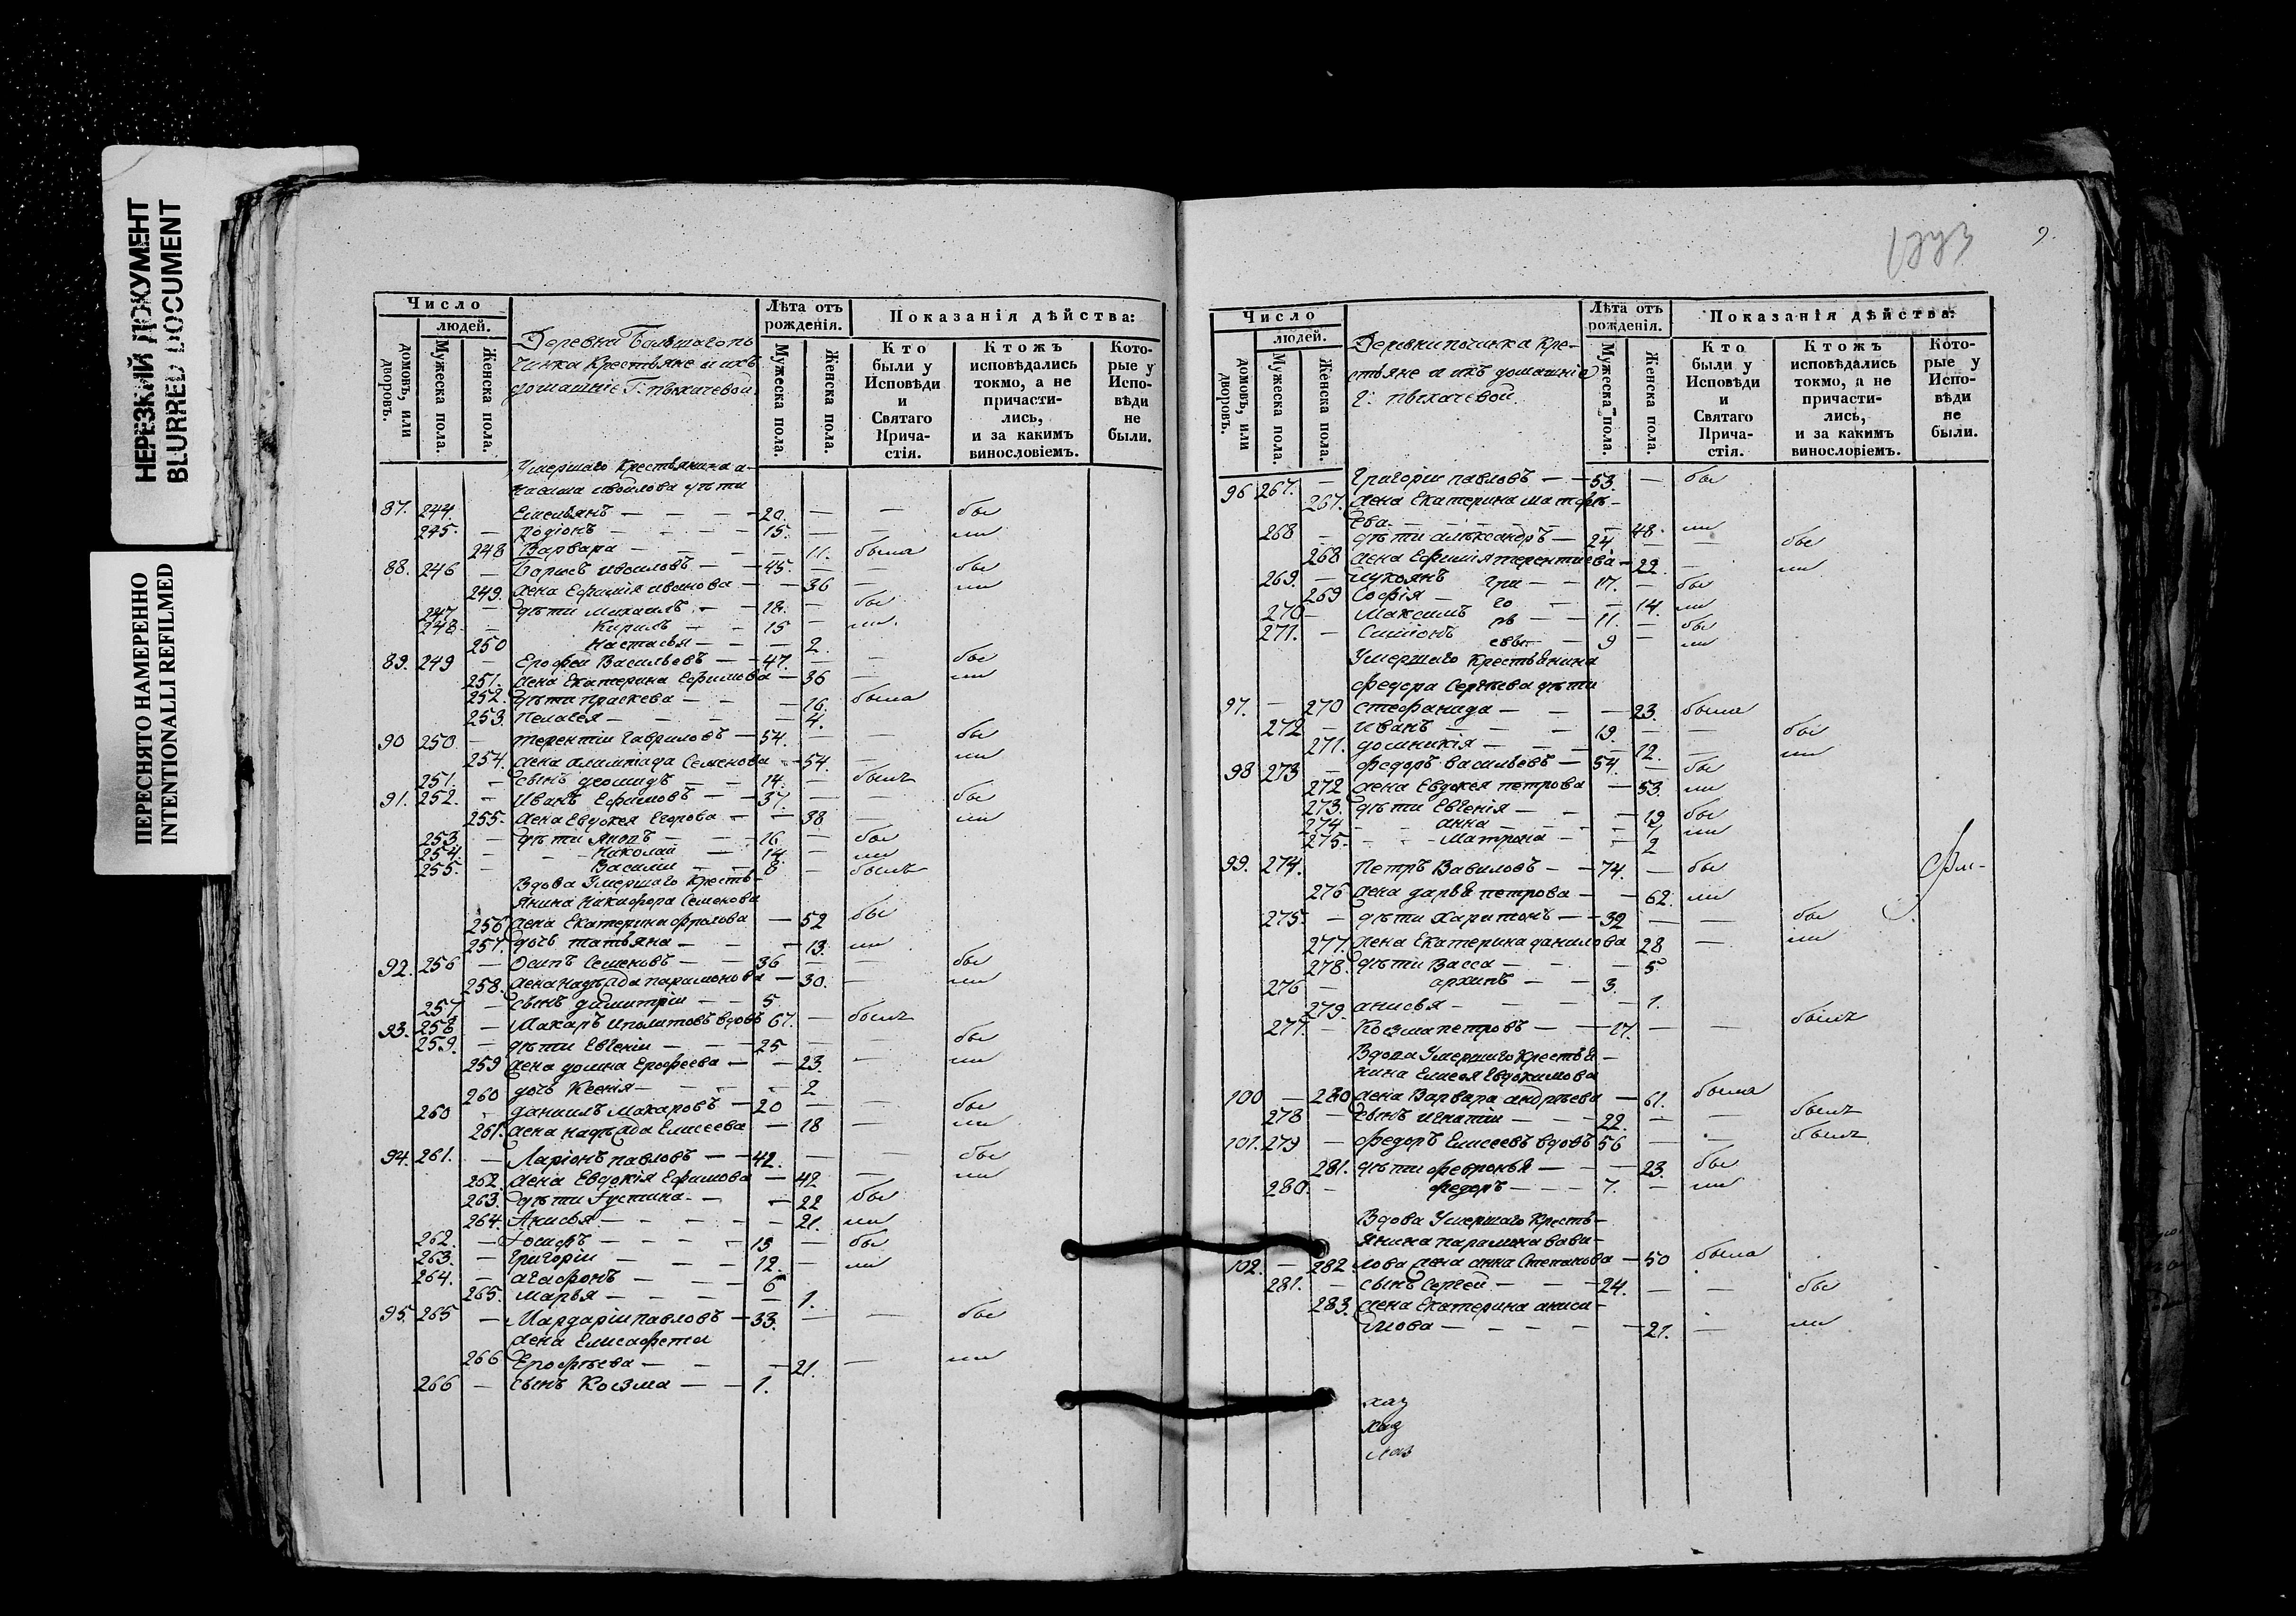 НЕРЕЗКИЙ ДОКУМЕНТ
BLURRED DOCUMENT
ПЕРЕСНЯТО НАМЕРЕННО
INTENTIONALLI REFILMED
Число
людей.
домовъ, или дворовъ.
Мужеска пола.
Женска пола.
Деревни Большаго по
чинка Крестьяне и ихъ
домашніе Г. Пыхачевой
Лѣта отъ рожденія.
Мужеска пола.
Женска пола.
Показанія дѣйства:
Кто были у Исповѣди и Святаго Прича-стія.
Ктожъ исповѣдались токмо, а не причасти-лись, и за какимъ винословіемъ.
Кото-рые у Испо-вѣди не были.
Умершаго Крестьянина а-
детти
87. 244. Емельянъ — 20. — — бы
245. — Родіонъ — 15. — ли
248 Варвара — 11. была
88. 246 — Борисъ — 45. — — бы
249. жена Ефимія Иванова — 36 — ли
247 — дѣти Михаилъ — 18. — бы
248 — Кирилъ — 15 — ли
250 Настасья — 2.
89. 249 — Ерофеи Васильевъ — 47. — — бы
251. жена Екатерина Ефимова — 36 — ли
252. дѣти Праскева — 16. была
253. Пелагея — 4.
90 250 — Терентіи Гавриловъ — 54. — — бы
254. жена алимпіада Семенова — 54. — ли
251. — сынъ — 14. — былъ
91. 252. — Иванъ Ефимовъ — 37. — — бы
255. жена Евдокея Егорова — 38 — ли
253 — дѣти — 16 — бы
254. — Николаи — 14 — ли
255. — Василіи — 8 — былъ
Вдова Умершаго Кресть-
янина Никифора Семенова
256 жена Екатерина Фролова — 52 бы
257. дочь татьяна — 13. ли
92. 256 — Осипъ Семеновъ — 36 — — бы
258. жена надежда парамонова — 30. — ли
257 — сынъ димитріи — 5
93. 258 — Макаръ Иполитовъ вдовъ 67. — былъ
259. — дѣти Евгеніи — 25 — — бы
259 жена домна Ерофеева — 23. — ли
260 дочь Ксенія — 2
260 — даниилъ Макаровъ — 20 — — бы
261. жена надежда Елисеева — 18 — ли
94. 261. — Ларіонъ павловъ — 42. — — бы
262. жена Евдокія Ефимова — 42 — ли
263. дѣти Іустина — 22 бы
264. Анисья — 21. ли
262. — Іосифъ — 15 — бы
263. — Григоріи — 12. — ли
264. — агафонъ — 6
265. марья — 1.
95. 265 — Мардаріи павловъ — 33. — — бы
жена Елисафета
266 Ерофѣева — 21. — ли
266 — сынъ Козма — 1.
9.
Число
людей.
домовъ, или дворовъ.
Мужеска пола.
Женска пола.
Деревни починка Кре-
стьяне и ихъ домашніе
Г: пыхачевой.
Лѣта отъ рожденія.
Мужеска пола.
Женска пола.
Показанія дѣйства:
Кто были у Исповѣди и Святаго Прича-стія.
Ктожъ исповѣдались токмо, а не причасти-лись, и за какимъ винословіемъ.
Кото-рые у Испо-вѣди не были.
96 267. — Григоріи павловъ — 53. — бы
267. жена Екатерина матфѣ-
ева — 48. ли
268 — дѣти александръ — 24 — — бы
268 жена Ефимія терентиева — 22. — ли
269. — Лукоянъ гри — 17. — бы
269 Софія — го — 14. ли
270 — Максимъ рь — 11. — бы
271. — Симіонъ евы — 9 — ли
Умершаго Крестьянина
федора Сергѣева дѣти
97. — 270 стефанида — 23. была
272 — иванъ — 19. — — бы
271. домникія — 12. — ли
98 273 — федоръ васильевъ — 54. — бы
272 жена Евдокея петрова — 53. ли
273. дѣти Евгенія — 19. бы
274 — анна — 7 ли
275. — Матрона — 2
99. 274. Петръ Вавиловъ — 74. — бы
276 жена дарья петрова — 62. ли
275. — дѣти харитонъ — 32 — — бы
277. жена Екатерина данилова 28 — ли
278. дѣти Васса — 5
276 — архипъ — 3.
279 анисья — 1.
277. — Козма петровъ — 17. — — былъ
Вдова Умершаго Крестья-
нина Елисея Евдокимова
100 — 280 жена Варвара андрѣева — 61. была
278 — сынъ игнатіи — 22. — — былъ
101. 279 — федоръ Елисеевъ вдовъ 56 — — былъ
281. дѣти февронья — 23. бы
280. — федоръ — 7. — ли
Вдова Умершаго Кресть-
янина парамона вави-
102. — 282 лова жена анна Степанова — 50 была
281. — сынъ Сергеи — 24. — — бы
283. жена Екатерина аниси-
мова — 21. — ли